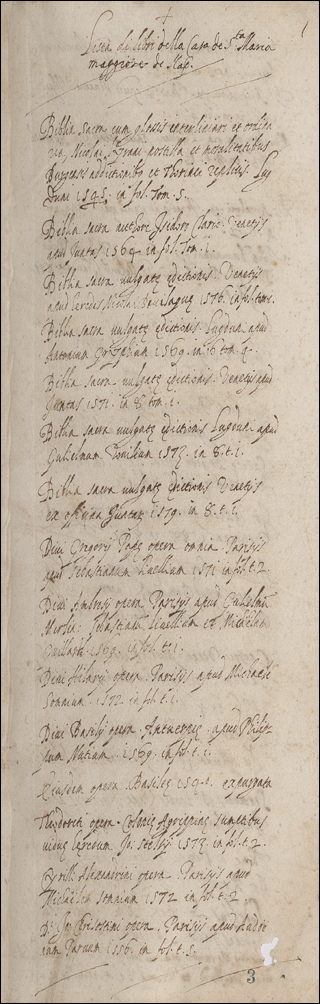 Lista de libri della Casa de S.ta Maria
maggiore de Nap.
1
Biblia sacra cum glossis interlineari et ordina
ria, Nicolai Lyrani postilla et moralitatibus
Burgensis additionibus et Thoringi replicis. Lug
duni 1545. in fol. tom. 5.
Biblia sacra auctore Isidoro Clario. Venetijs
apud Juntas 1564 in fol. tom. 1.
Biblia sacra vulgatę editionis. Venetijs
apud heredes Nicolai Bevilaquę 1576. in fol. tom. 1.
Biblia sacra vulgatę editionis. Lugduni apud
Antonium 1569. in 16 tom. 4.
Biblia sacra vulgatę editionis. Venetijs apud
Juntas 1571. in 8. tom. 1.
Biblia sacra vulgatę editionis Lugduni apud
Gulielmum Rovilium 1573. in 8. t. 1.
Biblia sacra vulgatę editionis Venetijs
ex officina Juntar. 1579. in 8. t. 1.
Divi Gregorij Papę opera omnia. Parisijs
apud Sebastianum Nivellium 1571 in fol. t. 2.
Divi Ambrosij opera. Parisijs apud Gulielmũ
Merlin. Sebastianũ Nivellium et Michaelẽ
1569. in fol. t. 1.
Divi Hilarij opera. Parisijs apud Michaelẽ
Sonnium. 1572. in fol. t. 1.
Divi Basilij opera. Antuerpię. apud Philip
pum Nutium. 1569. in fol. t. 1.
Eiusdem opera. Basileę expurgata
Theodoreti opera. Colonię Agrippinę sumptibus
viduę heredum Jo. Stelsij 1573. in fol. t. 2.
Cyrilli Alexandrini opera. Parisijs apud
Michaelem Sonnium 1572 in fol. t. 2.
D. Jo. Crisostomi opera. Parisijs apud Audoe
num Parvum 1556. in fol. t. 5.
3